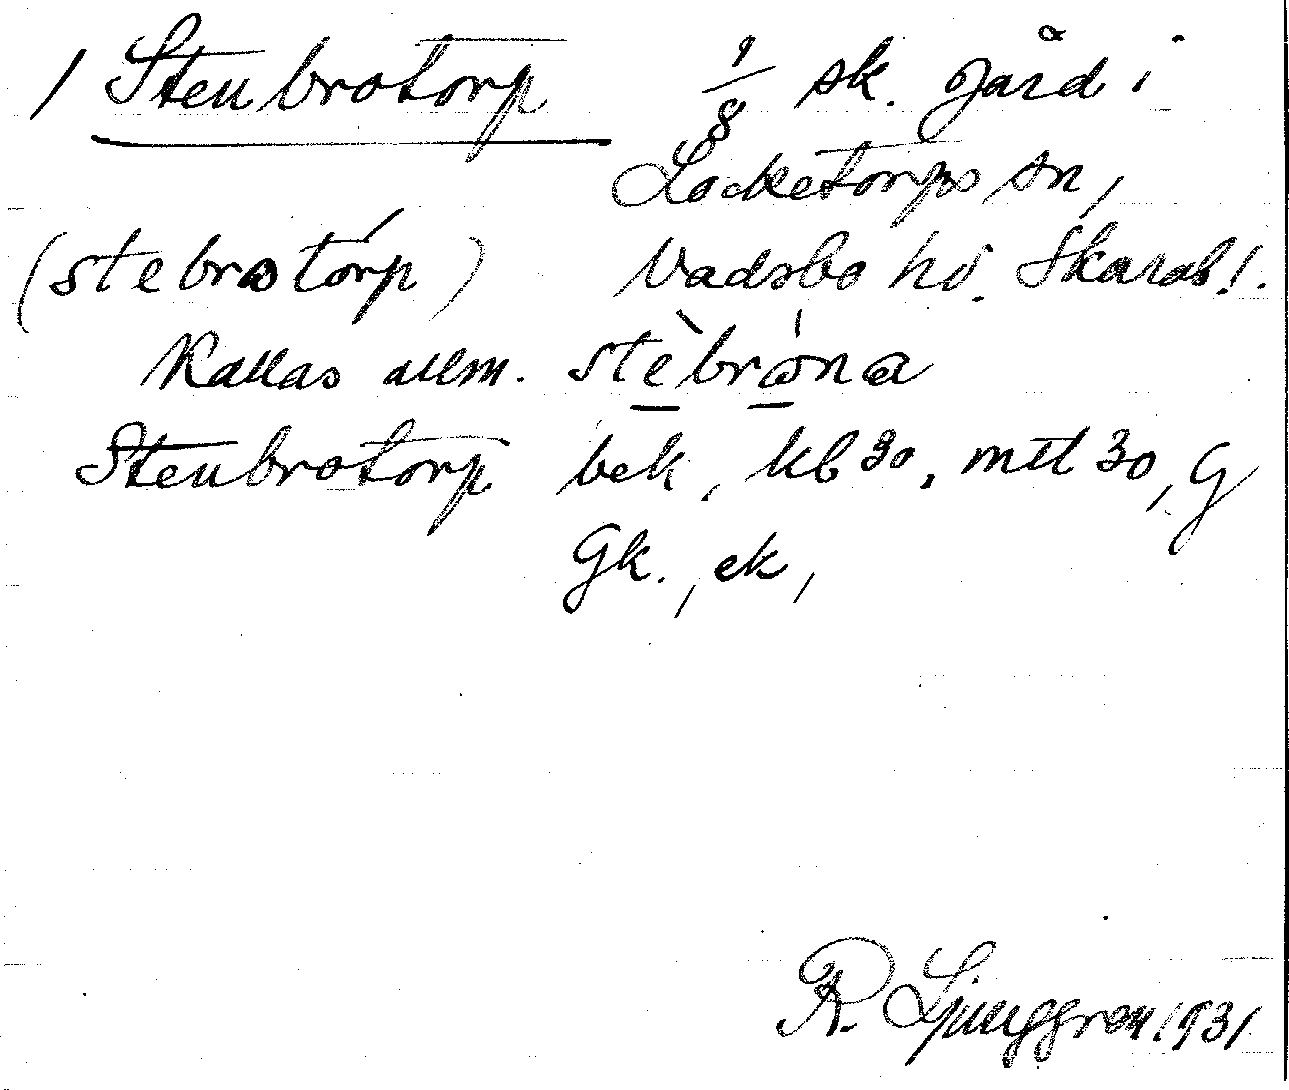 1 Stenbrotorp 1/8 sk. gård i
Locketorps sn,
(stebrotórp) Vadsbo hd. Skarab!.
Kallas allm. stèbróna
Stenbrotorp bek, kb 30, mtl 30, G
Gk., ek,
R. Ljunggren 1931